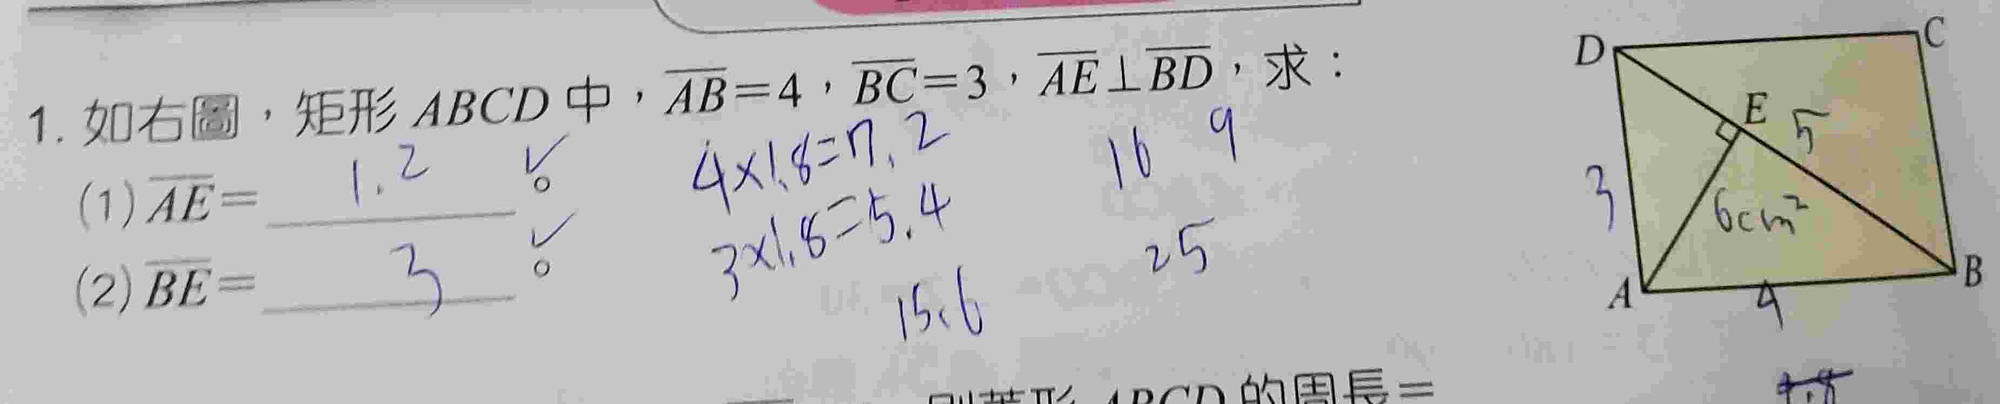 1. 如右圖，矩形 ABCD 中，AB=4，BC=3，AE⊥BD，求：
(1) AE= 1.2
(2) BE= 3
4×1.8=7.2
3×1.8=5.4
15.6
16 9
25
D
C
E
5
3
6cm²
A
4
B
ABCD 的周長=